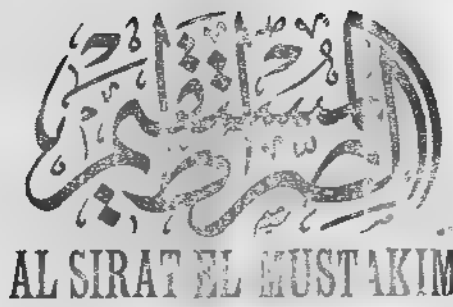 الصراط المستقيم
AL SIRAT EL MUSTAKIM